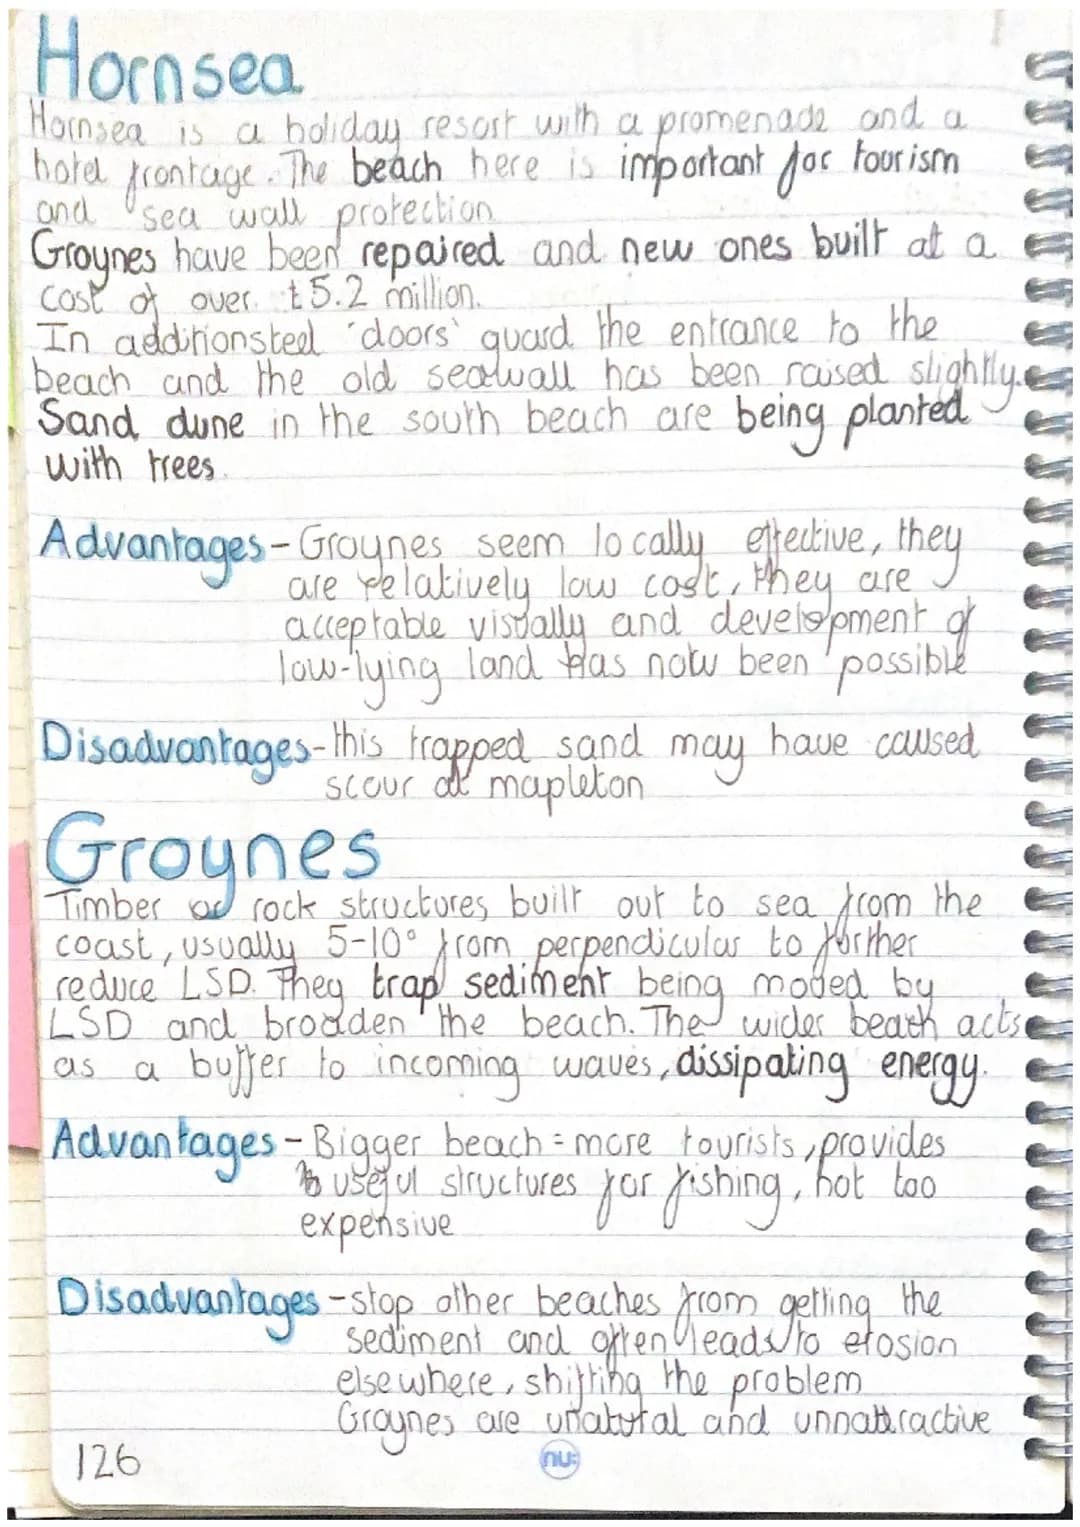 Hornsea
Hornsea is a holiday resort with a promenade and a
hotel frontage. The beach here is important for tourism
and sea wall protection
Groynes have been repaired and new ones built at a
cost of over £5.2 million.
In addition steel 'doors' guard the entrance to the
beach and the old seawall has been raised slightly.
Sand dune in the south beach are being planted
with trees.
Advantages - Groynes seem locally effective, they
are relatively low cost, they are
acceptable visually and development of
low-lying land has now been possible
Disadvantages - this trapped sand may have caused
scour at mapleton
Groynes
Timber or rock structures built out to sea from the
coast, usually 5-10° from perpendicular to further
reduce LSD. They trap sediment being moved by
LSD and broaden the beach. The wider beach acts
as a buffer to incoming waves, dissipating energy.
Advantages - Bigger beach = more tourists, provides
useful structures for fishing, not too
expensive
Disadvantages - stop other beaches from getting the
sediment and often leads to erosion
elsewhere, shifting the problem
Groynes are unatural and unnattractive
126
nu: